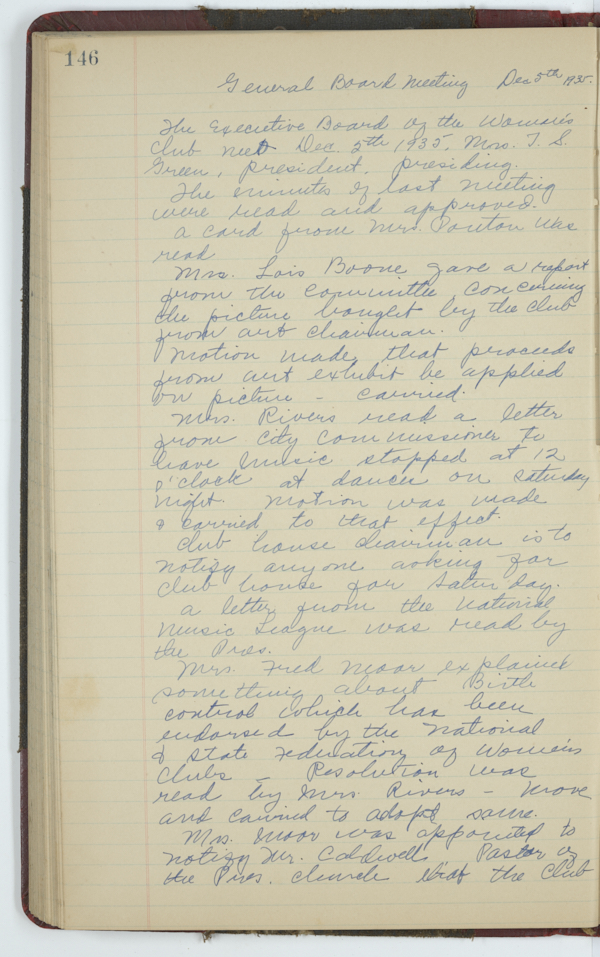 146
General Board Meeting Dec 5th 1935.
The Executive Board of the Woman's
Club met Dec. 5th 1935, Mrs. T. S.
Green, President, presiding.
The minutes of last meeting
were read and approved.
A card from Mrs. Ponton was
read
Mrs. Lois Boone gave a report
from the committee concerning
the picture bought by the Club
from art chairman.
Motion made that proceeds
from art exhibit be applied
on picture - carried.
Mrs. Rivers read a letter
from city commissioner to
have music stopped at 12
o'clock at dances on Saturday
night. Motion was made
& carried to that effect.
Club house chairman is to
notify anyone asking for
Club house for Saturday.
A letter from the National
Music League was read by
the Pres.
Mrs. Fred Moor explained
something about Birth
control which has been
endorsed by the National
& State Federation of Women's
Clubs - Resolution was
read by Mrs. Rivers - move
and carried to adopt same.
Mrs. Moor was appointed to
notify Mr. Caldwell, Pastor of
the Pres. church that the Club